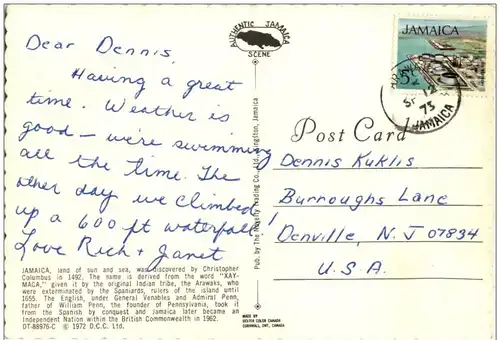 Dear Dennis,
Having a great
time. Weather is
good – we're swimming
all the time. The
other day we climbed
up a 600 ft waterfall!
Love Rich + Janet
JAMAICA, land of sun and sea, was discovered by Christopher
Columbus in 1492. The name is derived from the word "XAY-
MACA," given it by the original Indian tribe, the Arawaks, who
were exterminated by the Spaniards, rulers of the island until
1655. The English, under General Venables and Admiral Penn,
father of William Penn, the founder of Pennsylvania, took it
from the Spanish by conquest and Jamaica later became an
Independent Nation within the British Commonwealth in 1962.
DT-88976-C © 1972 D.C.C. Ltd.
AUTHENTIC JAMAICA
SCENE
Pub. by The Novelty Trading Co., Ltd., Kingston, Jamaica
MADE BY
DEXTER COLOR CANADA
CORNWALL, ONT, CANADA
JAMAICA
5c
12
73
JAMAICA
Post Card
Dennis Kuklis
Burroughs Lane
Denville, NJ 07834
U.S.A.